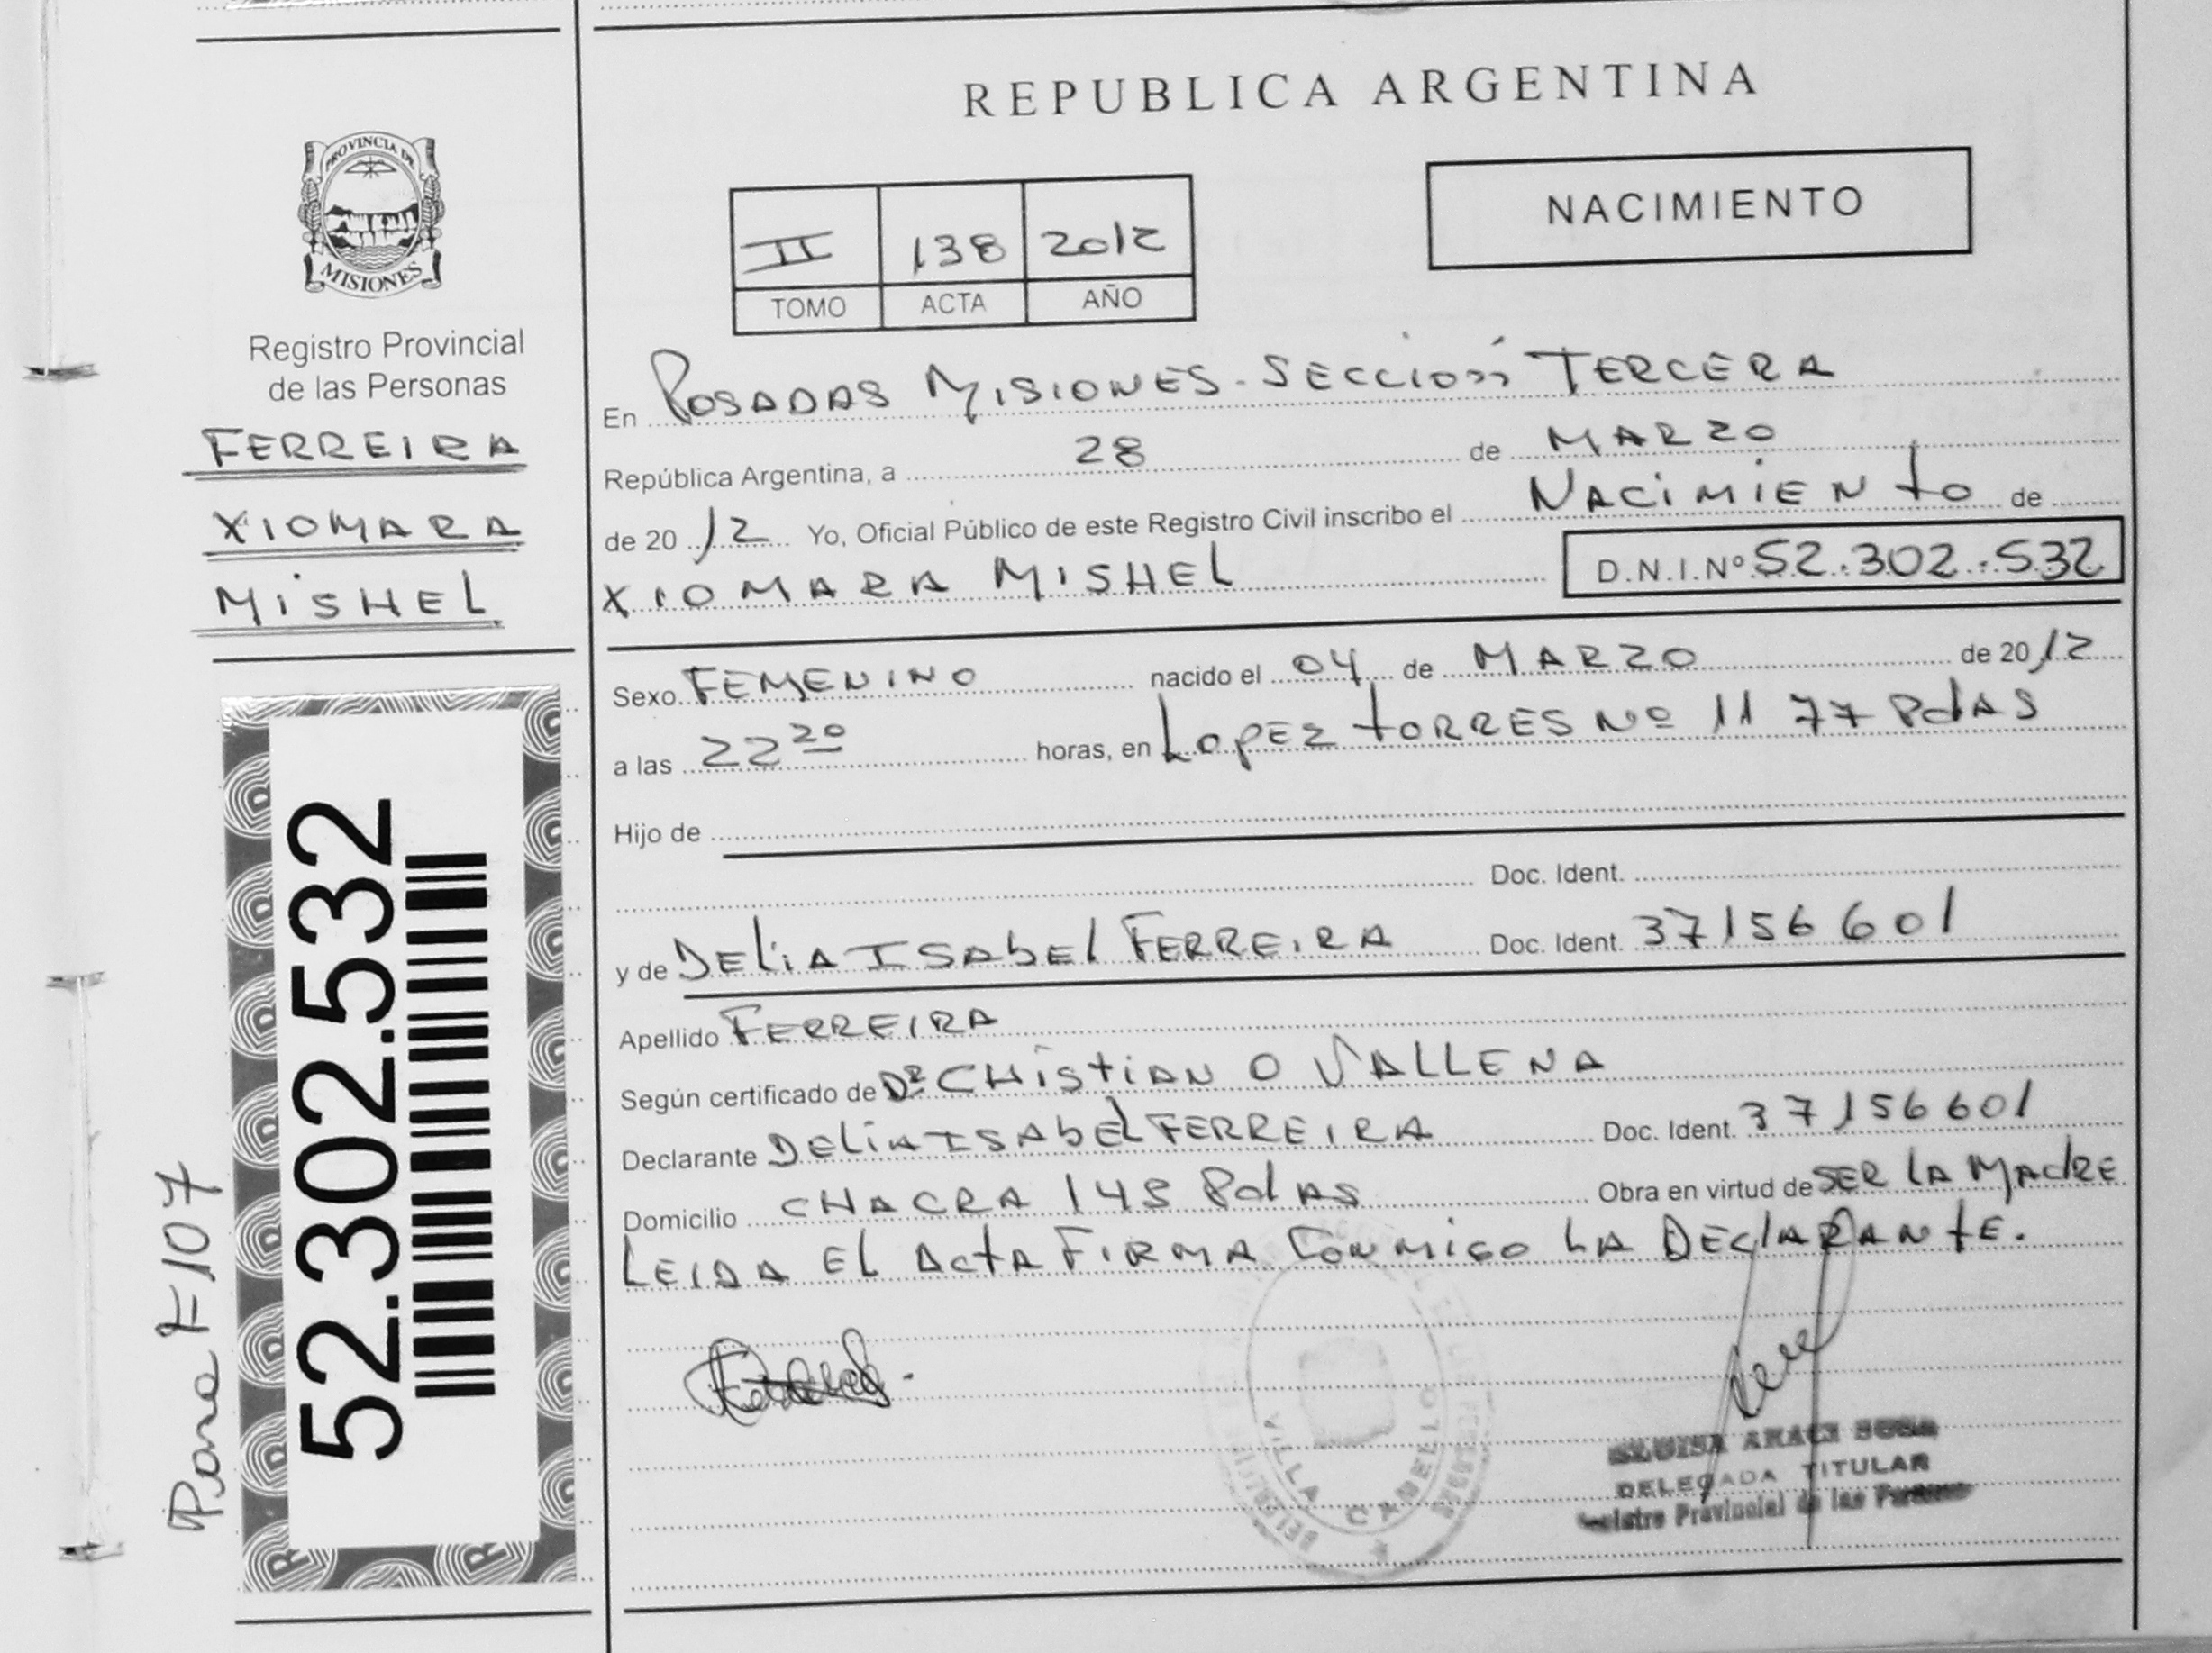 PROVINCIA DE
MISIONES
Registro Provincial
de las Personas
FERREIRA
XIOMARA
MISHEL
52.302.532
REPUBLICA ARGENTINA
NACIMIENTO
II 138 2012
TOMO ACTA AÑO
En POSADAS MISIONES - SECCIÓN TERCERA
República Argentina, a 28 de MARZO
de 2012 Yo, Oficial Público de este Registro Civil inscribo el NACIMIENTO de
XIOMARA MISHEL D.N.I.Nº 52.302.532
Sexo FEMENINO nacido el 04 de MARZO de 2012
a las 22 20 horas, en LOPEZ TORRES Nº 1177 PdAS
Hijo de
Doc. Ident.
y de DELIA ISABEL FERREIRA Doc. Ident. 37156601
Apellido FERREIRA
Según certificado de DR CHISTIAN O VALLENA
Declarante DELIA ISABEL FERREIRA Doc. Ident. 37156601
Domicilio CHACRA 145 PdAS Obra en virtud de SER LA MADRE
LEIDA EL ACTA FIRMA CONMIGO LA DECLARANTE.
VILLA CABELLO
DELEGADA TITULAR
Registro Provincial de las Personas